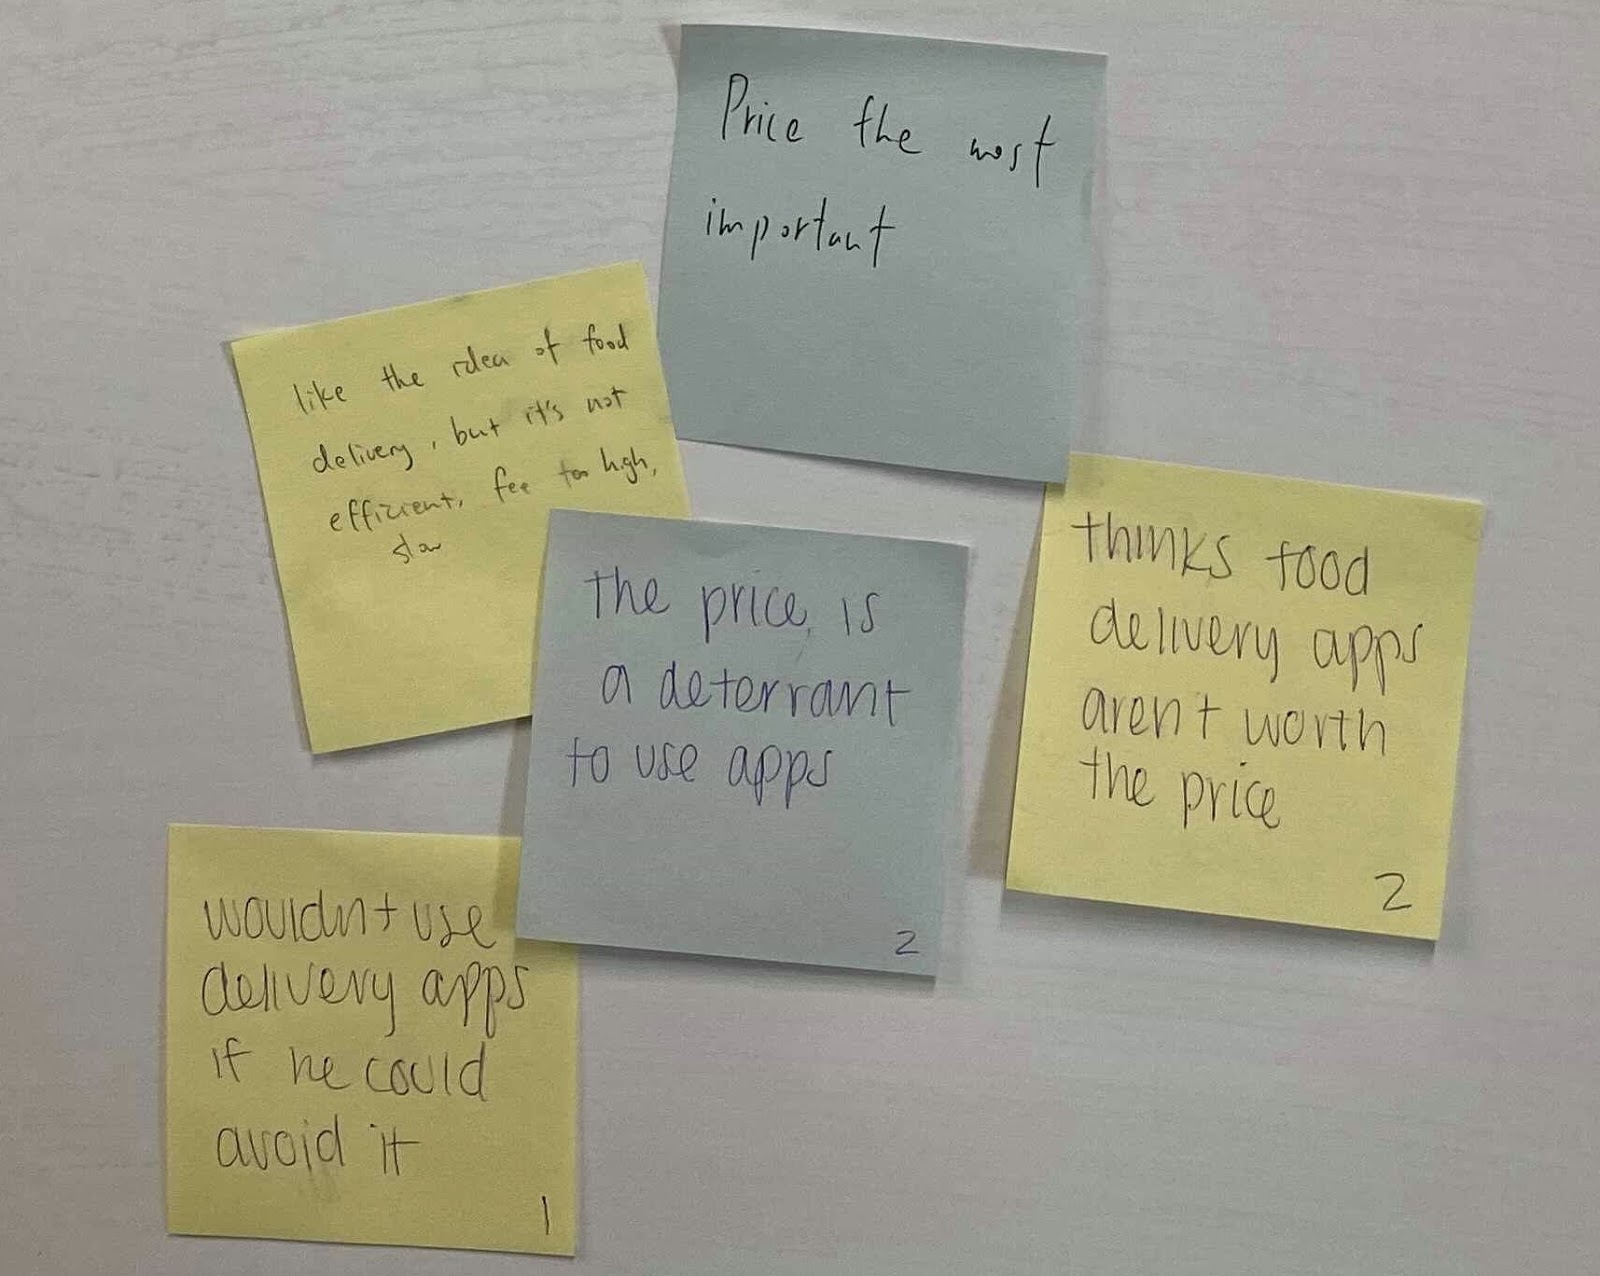 Price the most
important
like the idea of food
delivery, but it's not
efficient, fee too high,
slow
the price is
a deterrant
to use apps
2
thinks food
delivery apps
arent worth
the price
2
wouldnt use
delivery apps
if he could
avoid it
1